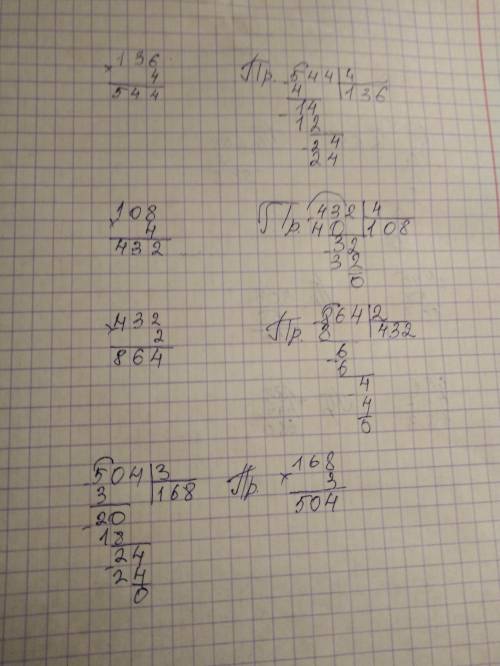 136 Пр. 544 | 4
× 4 - 4 136
544 14
- 12
24
- 24
108 Пр. 432 | 4
× 4 - 40 108
432 32
- 32
0
432 Пр. 864 | 2
× 2 - 8 432
864 6
- 6
4
- 4
0
504 | 3 Пр. 168
- 3 168 × 3
20 504
- 18
24
- 24
0